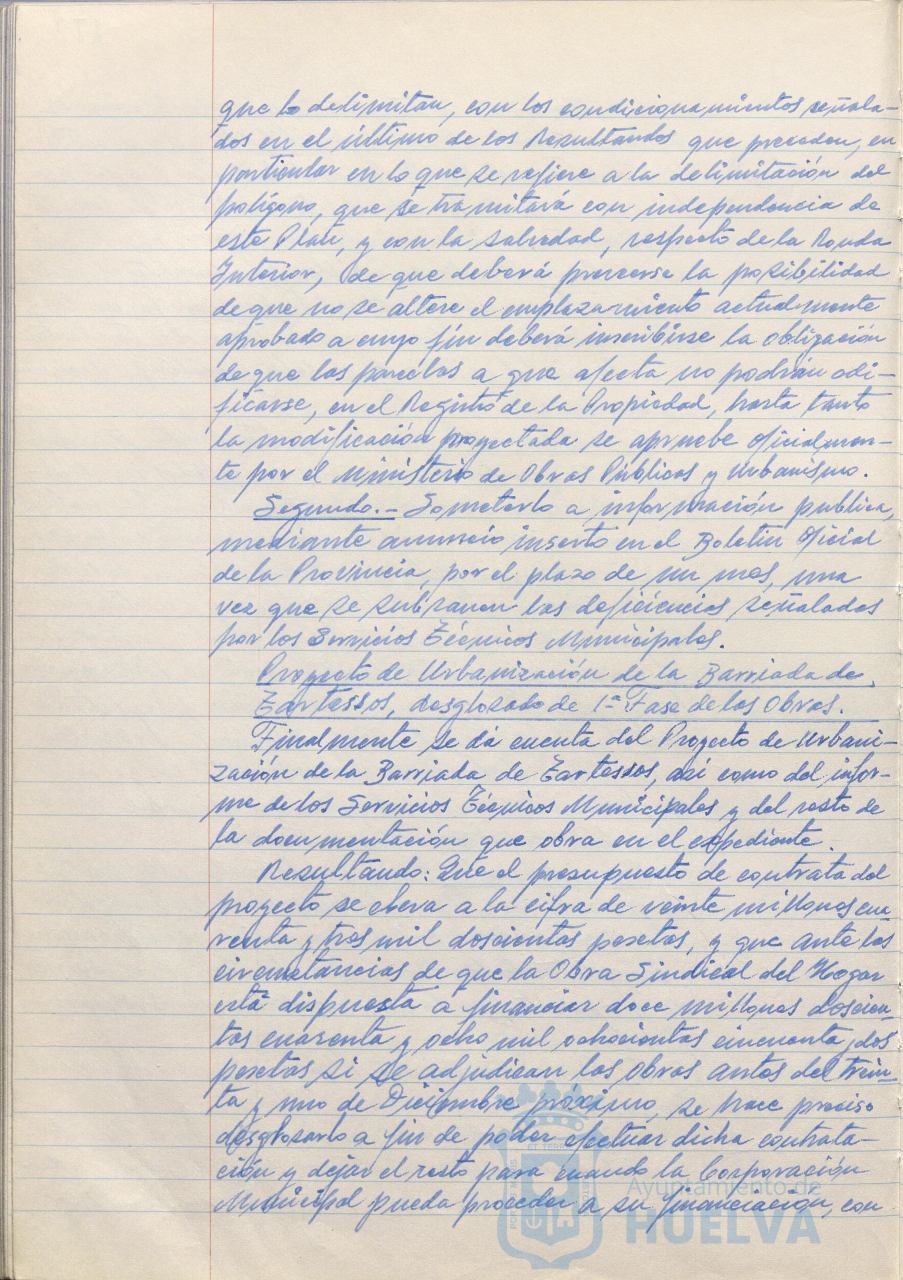 que lo delimitan, con los condicionamientos señala-
dos en el último de los Resultandos que preceden, en
particular en lo que se refiere a la delimitación del
polígono, que se tramitará con independencia de
este Plan, y con la salvedad, respecto de la Ronda
Interior, de que deberá preveerse la posibilidad
de que no se altere el emplazamiento actualmente
aprobado a cuyo fin deberá inscribirse la obligación
de que las parcelas a que afecta no podrán edi-
ficarse, en el Registro de la Propiedad, hasta tanto
la modificación proyectada se apruebe oficialmen-
te por el Ministerio de Obras Públicas y Urbanismo.
Segundo.- Someterlo a información publica,
mediante anuncio inserto en el Boletin Oficial
de la Provincia, por el plazo de un mes, una
vez que se subsanen las deficiencias señaladas
por los Servicios Técnicos Municipales.
Proyecto de Urbanización de la Barriada de
Tartessos, desglosado de 1ª Fase de las Obras.
Finalmente se dá cuenta del Proyecto de Urbani-
zación de la Barriada de Tartessos, así como del infor-
me de los Servicios Técnicos Municipales y del resto de
la documentación que obra en el expediente.
Resultando: Que el presupuesto de contrata del
proyecto se eleva a la cifra de veinte millones cua
renta y tres mil doscientas pesetas, y que ante las
circunstancias de que la Obra Sindical del Hogar
está dispuesta a financiar doce millones doscien-
tas cuarenta y ocho mil ochocientas cincuenta y dos
pesetas si se adjudican las obras antes del trein-
ta y uno de Diciembre próximo, se hace preciso
desglosarlo a fin de poder efectuar dicha contrata-
ción y dejar el resto para cuando la Corporación
Municipal pueda proceder a su financiación, con
Ayuntamiento de
HUELVA